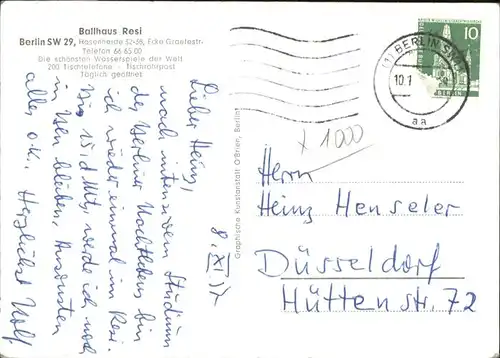 Ballhaus Resi
Berlin SW 29, Hasenheide 32-38, Ecke Graefestr.
Telefon 66 65 00
Die schönsten Wasserspiele der Welt
200 Tischtelefone - Tischrohrpost
Täglich geöffnet
8. XI 57
Lieber Heinz,
nach intensivem Studium
des Berliner Nachtlebens bin
ich wieder einmal im Resi.
Bis 15. d. Mts. werde ich noch
in bleiben, Ansonsten
alles o.k., Herzlichst Wolf
Graphische Kunstanstalt O'Brien, Berlin
(1) BERLIN SW
10.1
aa
10
BERLIN
x 1000
Herrn
Heinz Henseler
Düsseldorf
Hüttenstr. 72